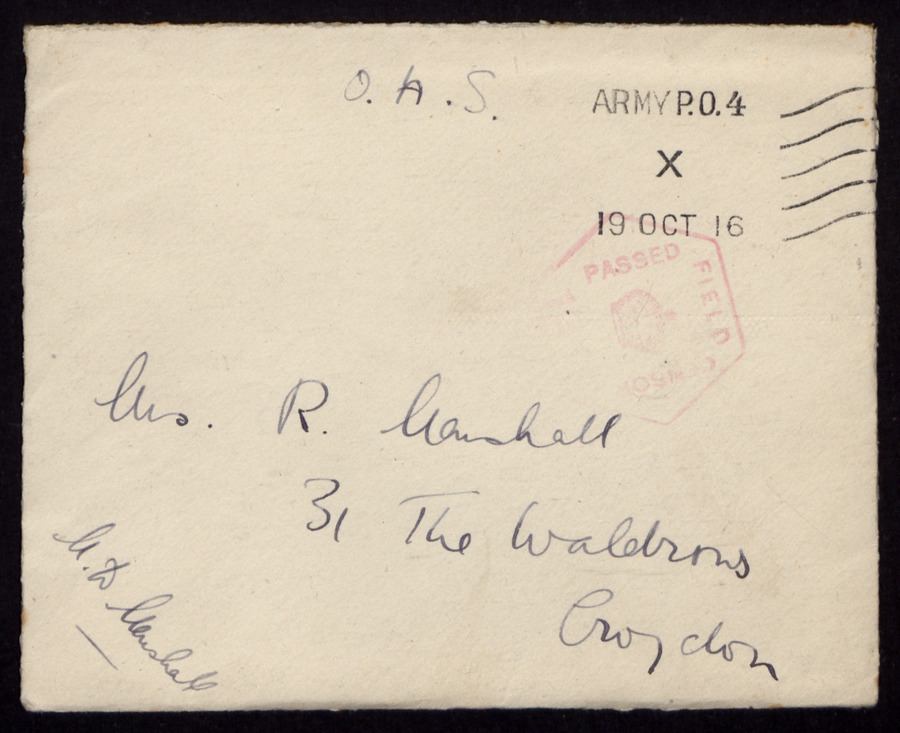 O. A. S.
ARMY P.O. 4
X
19 OCT 16
PASSED FIELD CENSOR
Mrs. R. Marshall
31 The Waldrons
Croydon
Marshall